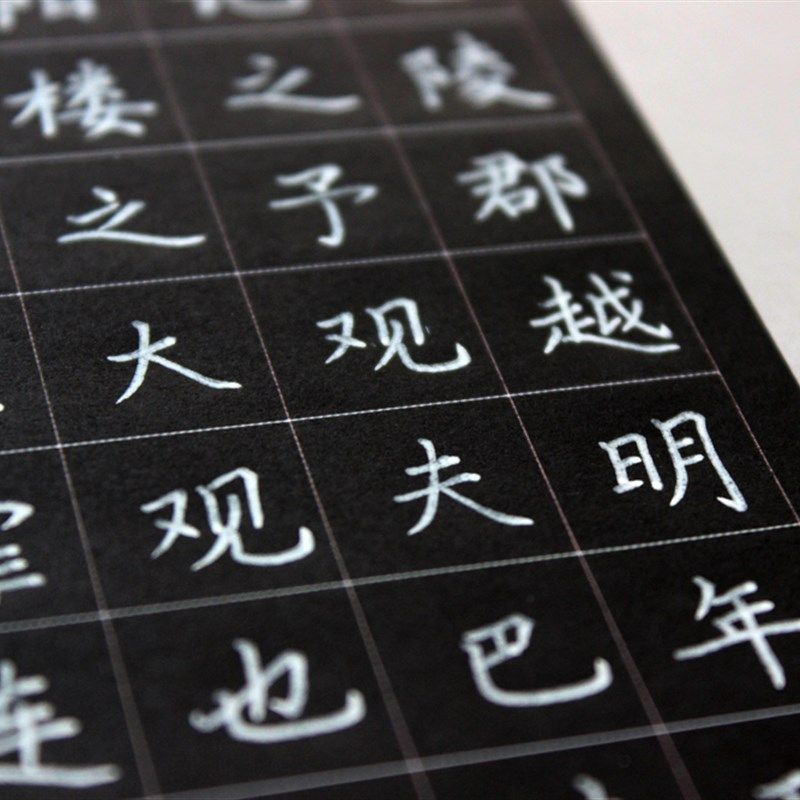 陵郡越明年
之予观夫巴
楼之大观也
连